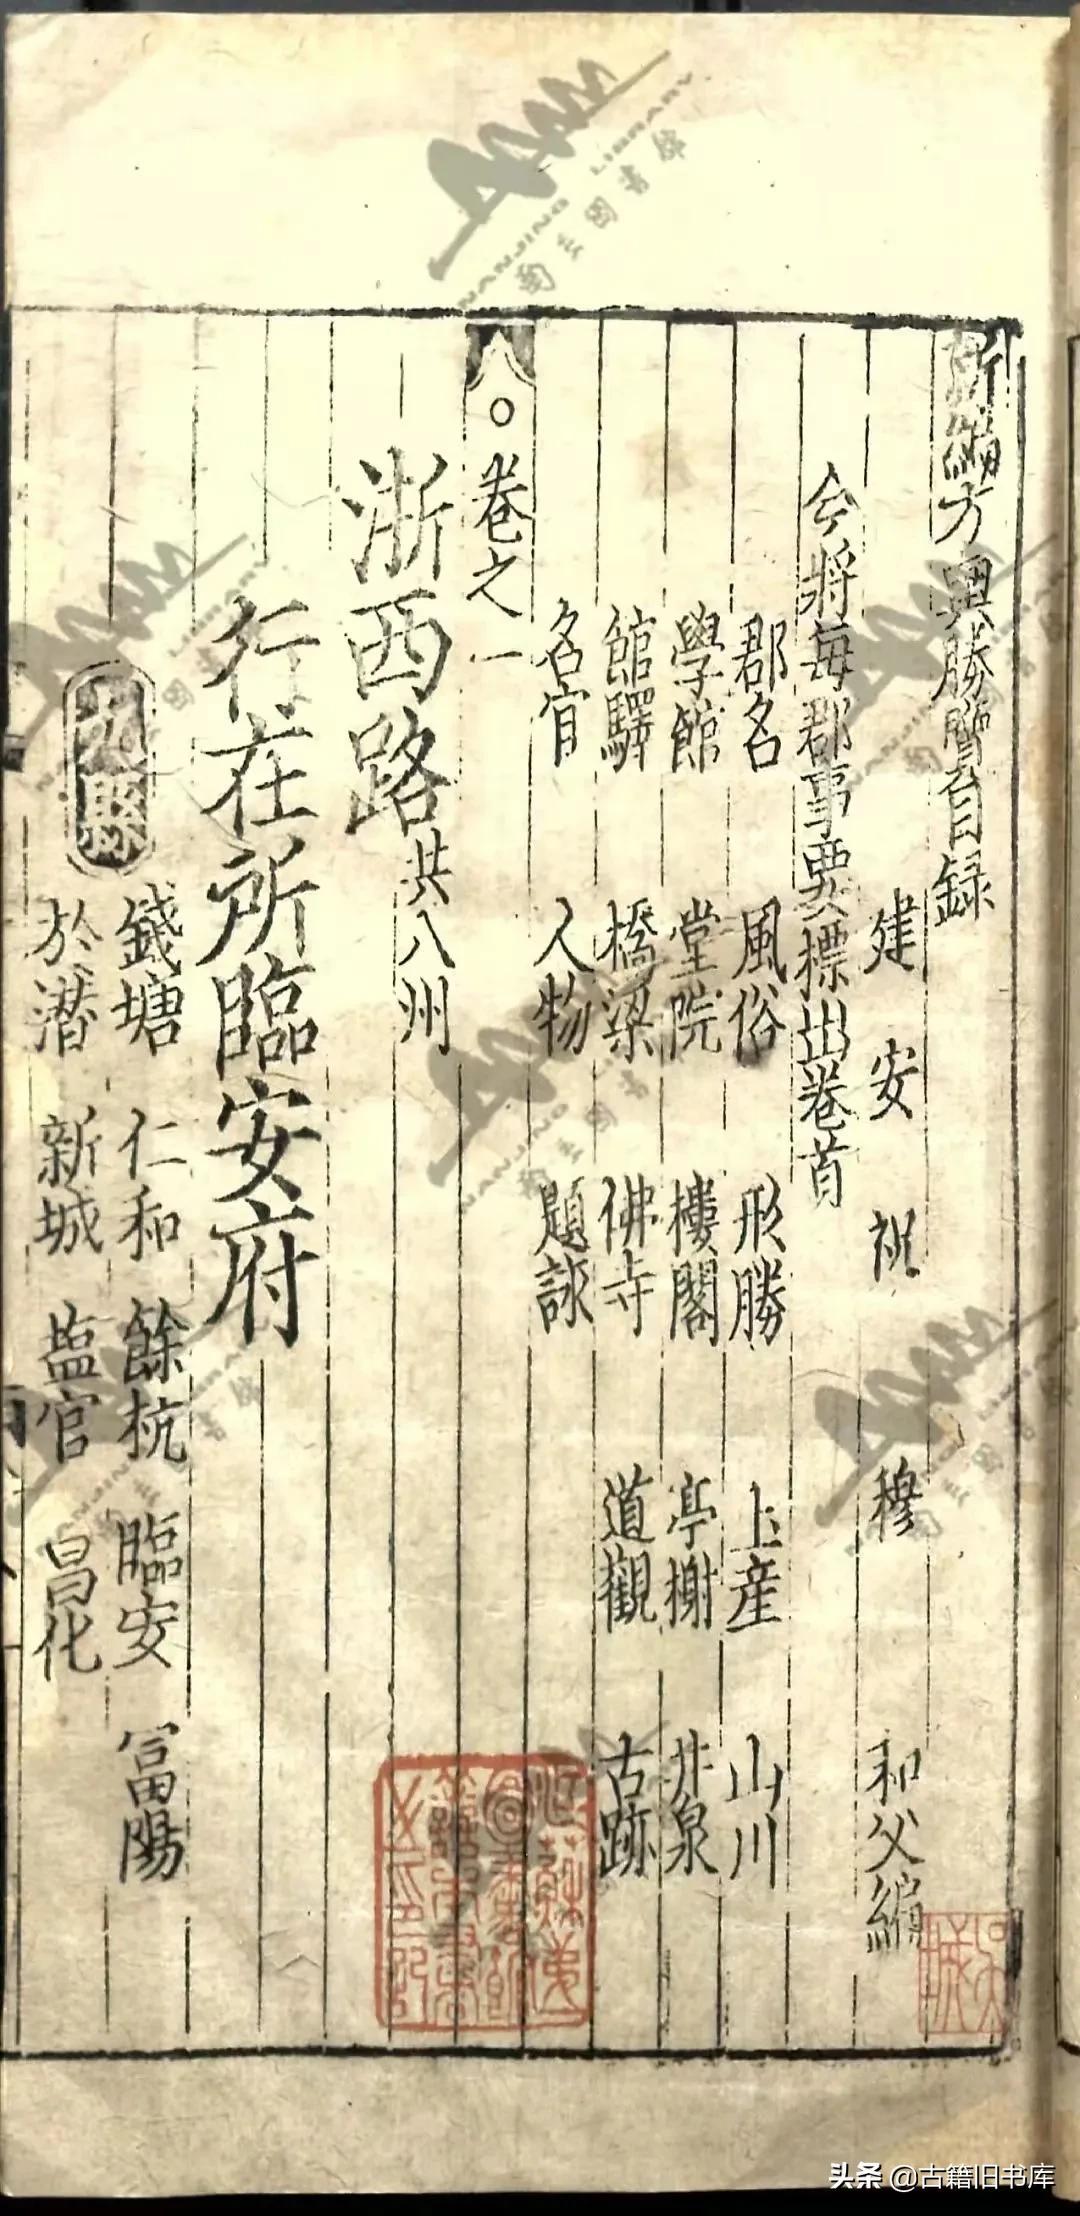 新編方輿勝覽目録
建安祝穆和父編
今將每郡事要標出卷首
郡名 風俗 形勝 土産 山川
學館 堂院 樓閣 亭榭 井泉
館驛 橋梁 佛寺 道觀 古跡
名宦 人物 題詠
卷之一
浙西路共八州
行在所臨安府
九縣
錢塘 仁和 餘杭 臨安 富陽
於潜 新城 塩官 昌化
头条 @古籍旧书库